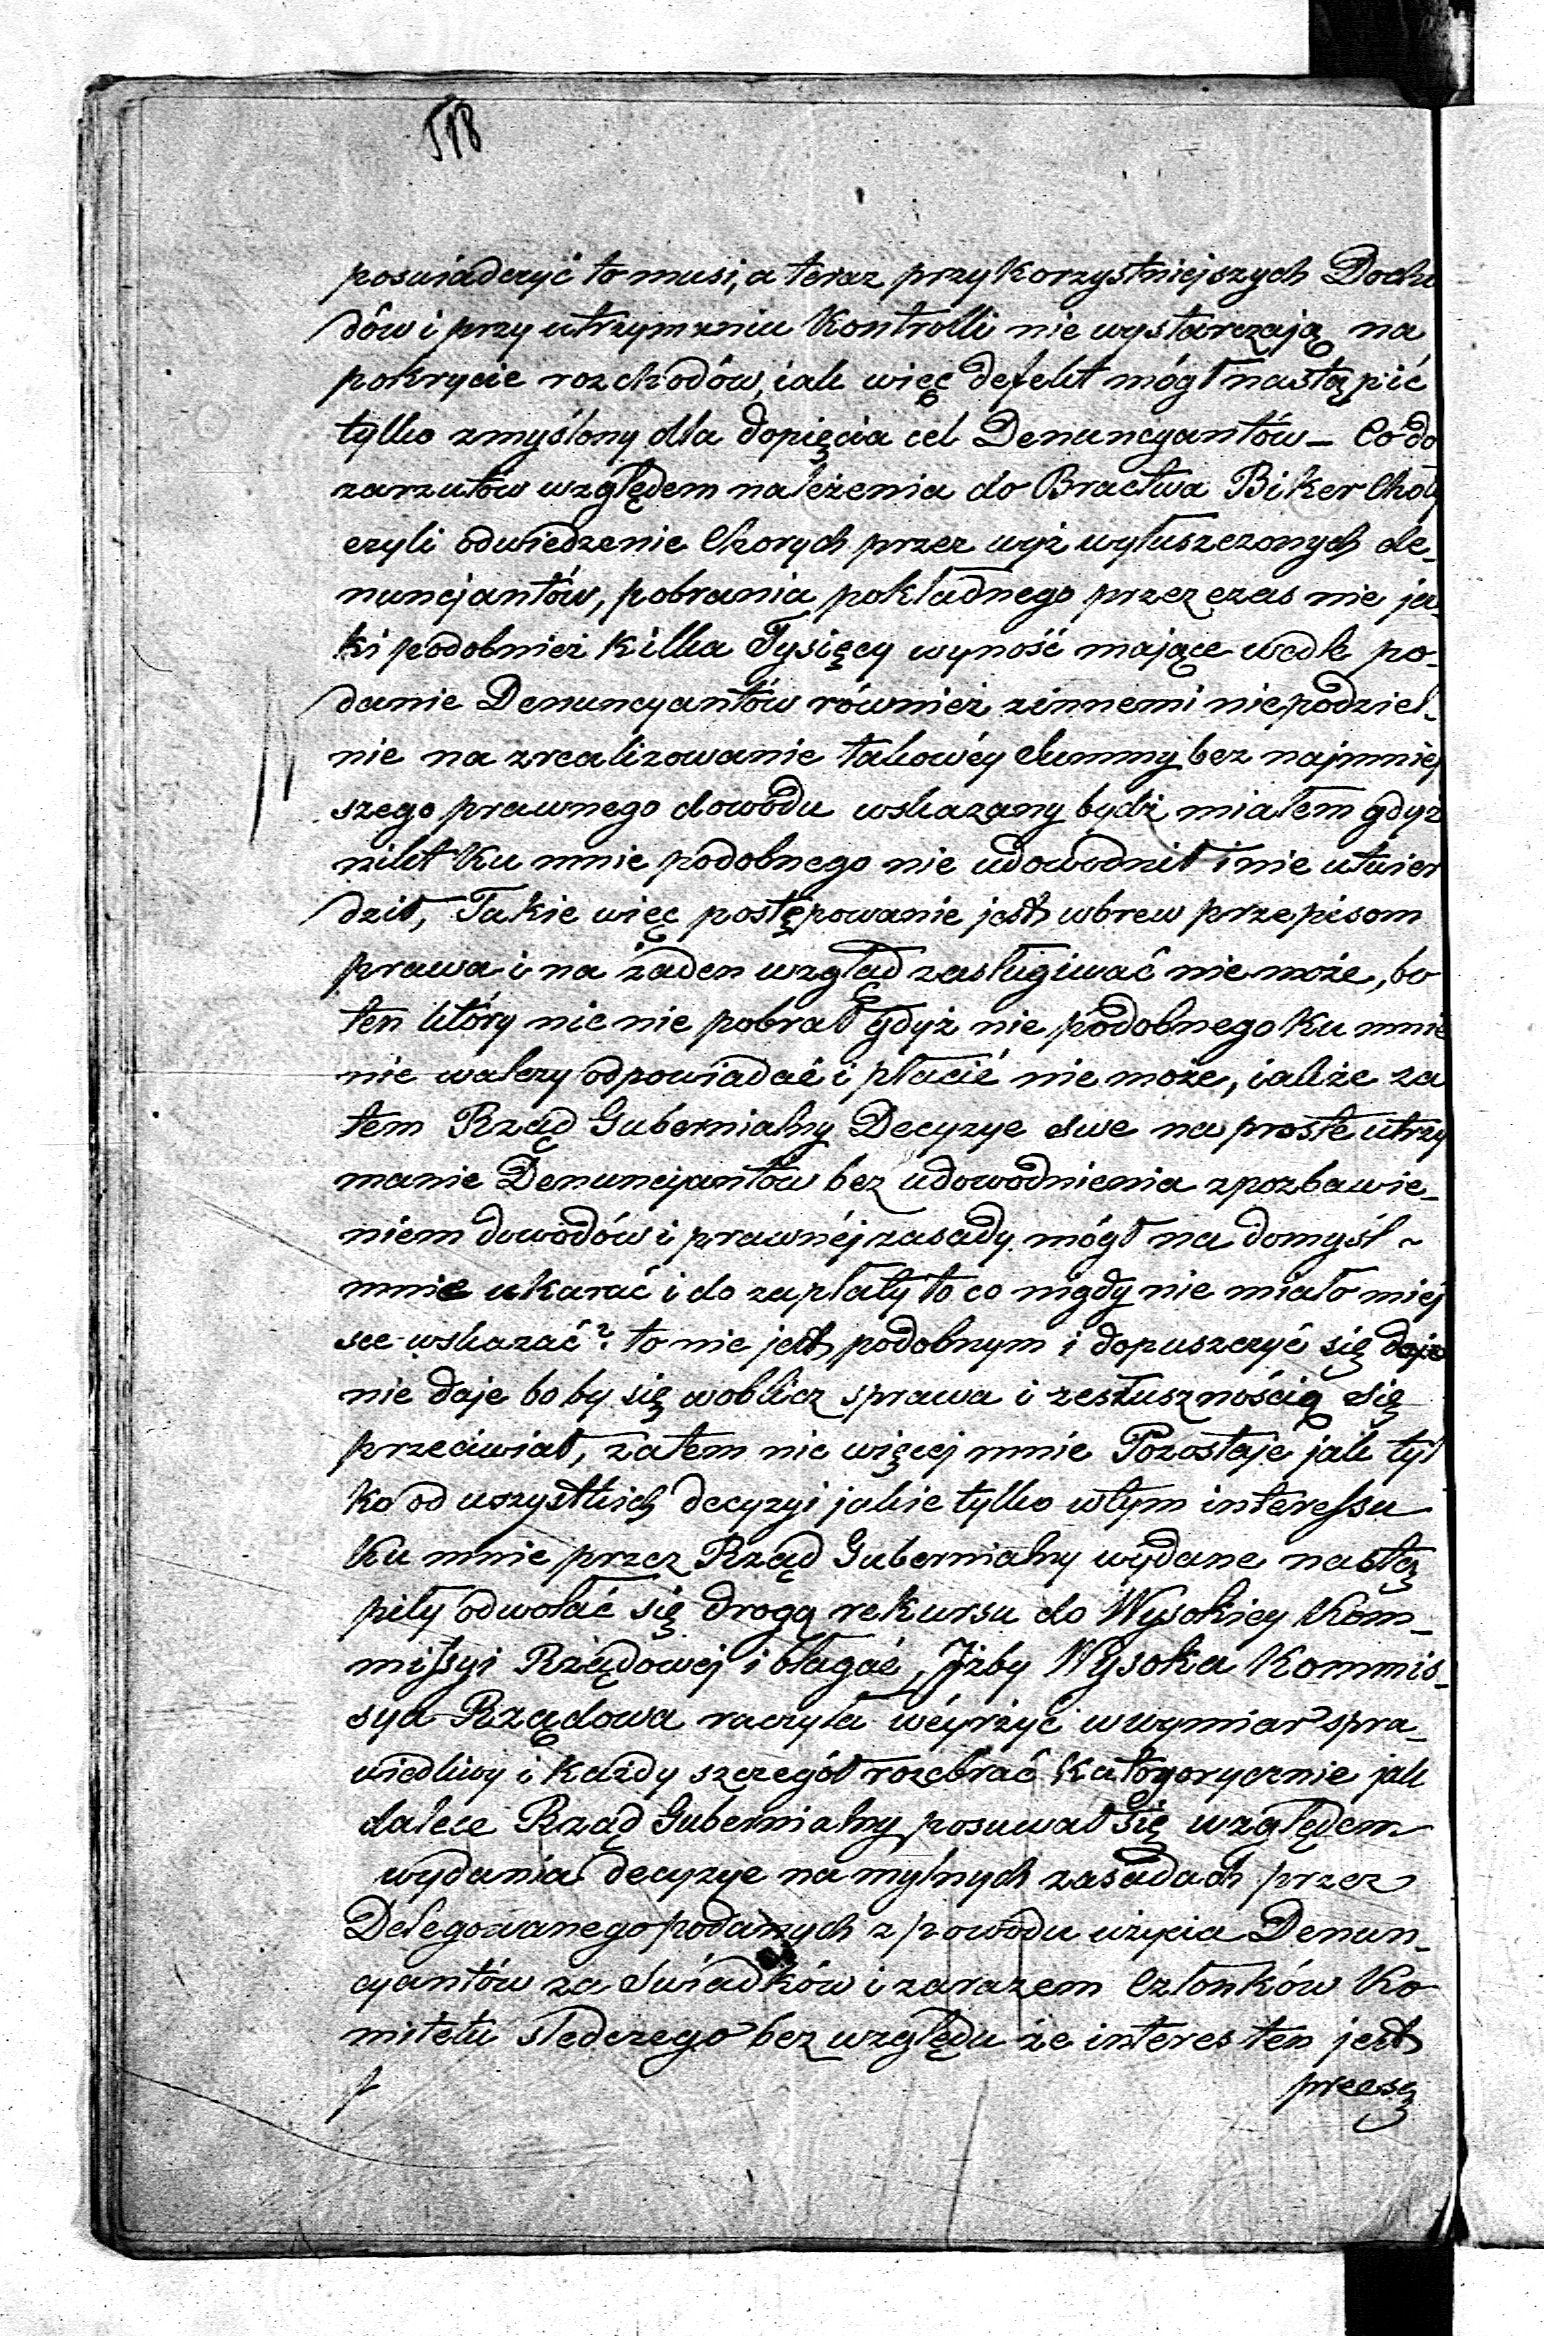 518
poswiadczyć to musi, a teraz przy korzystniejszych Docho
dów i przy utrzymaniu Kontrolli nie wystarczają na
pokrycie rozchodów, iak więc defekt mógł nastąpić
tylko zmyślony dla dopięcia cel Denuncyantów – Co do
zarzutów względem należenia do Bractwa Biker Choly
czyli odwiedzenie Chorych przez wyż wyłuszczonych de-
nuncjantów, pobrania pokładnego przez czas nie ja-
ki podobnież kilka Tysięcy wyność mające wedle po-
danie Denuncyantów również zinnemi niepodziel-
nie na zrealizowanie takowéy Summy bez najmniej
szego prawnego dowodu wskazany bydź miałem gdyż
nikt Ku mnie podobnego nie udowodnił i nie utwier
dził, Takie więc postępowanie jest wbrew przepisom
prawa i na żaden wzgląd zasługiwać nie może, bo
ten który nic nie pobrał gdyż nie podobnego Ku mnie
nie walczy odpowiadać i płacić nie może, iakże za
tem Rząd Gubernialny Decyzye swe na proste utrzy
manie Denuncjantów bez udowodnienia z pozbawie-
niem dowodów i prawnéj zasady mógł na domysł ~
mnie ukarać i do zapłaty to co nigdy nie miało miej
sce wskazać? to nie jest podobnym i dopuszczyć się daje
nie daje bo by się woblicz sprawa i zesłusznością się
przeciwiał, zatem nic więcej mnie Pozostaje jak tyl
ko od wszystkich decyzyi jakie tylko wtym interessu
Ku mnie przez Rząd Gubernialny wydane nastą
piły odwołać się drogą rekursu do Wysokiey Kom-
missyi Rządowej i błagać, Jżby Wysoka Kommis-
sya Rządowa raczyła wéyrżyć w wymiar spra-
wiedliwy i każdy szczegół rozebrać Katogorycznie jak
dalece Rząd Gubernialny posuwał się względem
wydania decyzye na mylnych zasadach przez
Delegowanego podanych z powodu użycia Denun-
cyantów za Swiadków i zarazem Członków Ko
mitetu sledczego bez względu że interes ten jest